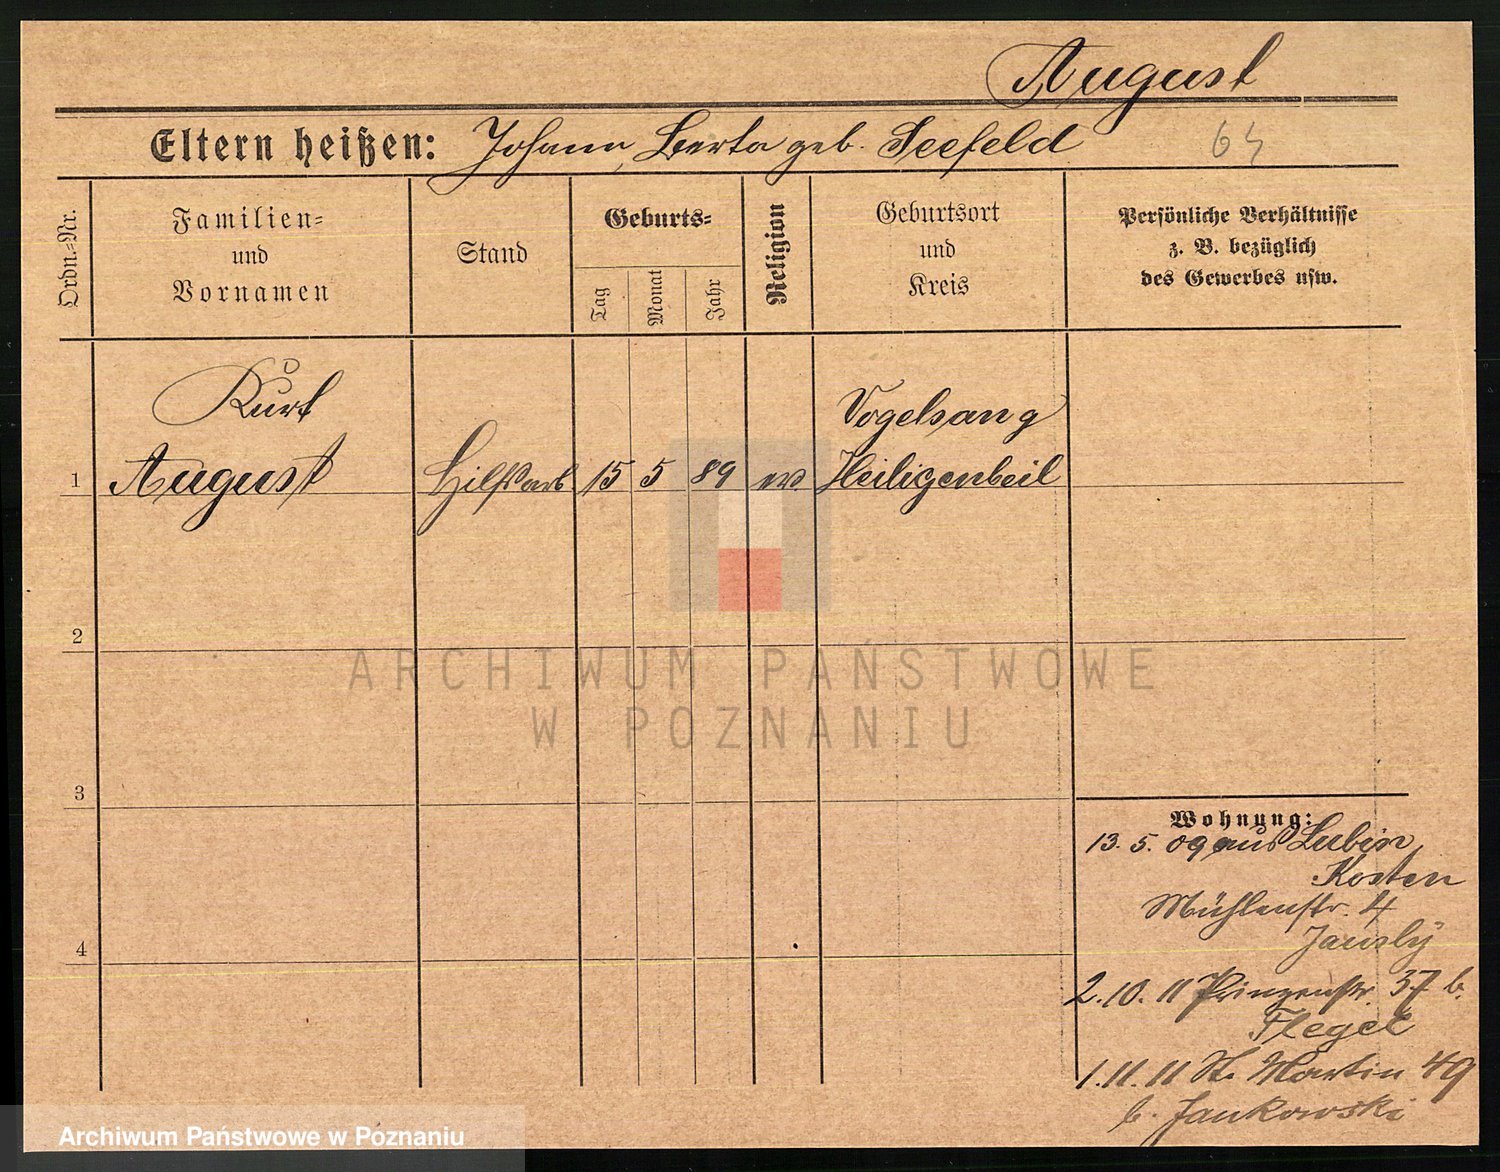 August
Eltern heißen: Johann, Berta geb. Seefeld 64
Ordn.-Nr.
Familien- und Vornamen
Stand
Geburts-
Tag
Monat
Jahr
Religion
Geburtsort und Kreis
Persönliche Verhältnisse
z. B. bezüglich
des Gewerbes usw.
Kurt
Vogelsang
1 August Hilfsarb 15 5 89 ev Heiligenbeil
2
ARCHIWUM PAŃSTWOWE
W POZNANIU
3
Wohnung:
13. 5. 09 aus Lubin
Kosten
Mühlenstr. 4
4
2. 10. 11 Prinzenstr. 37 b.
Flegel
1. 11. 11 St. Martin 49
b. Jankowski
Archiwum Państwowe w Poznaniu